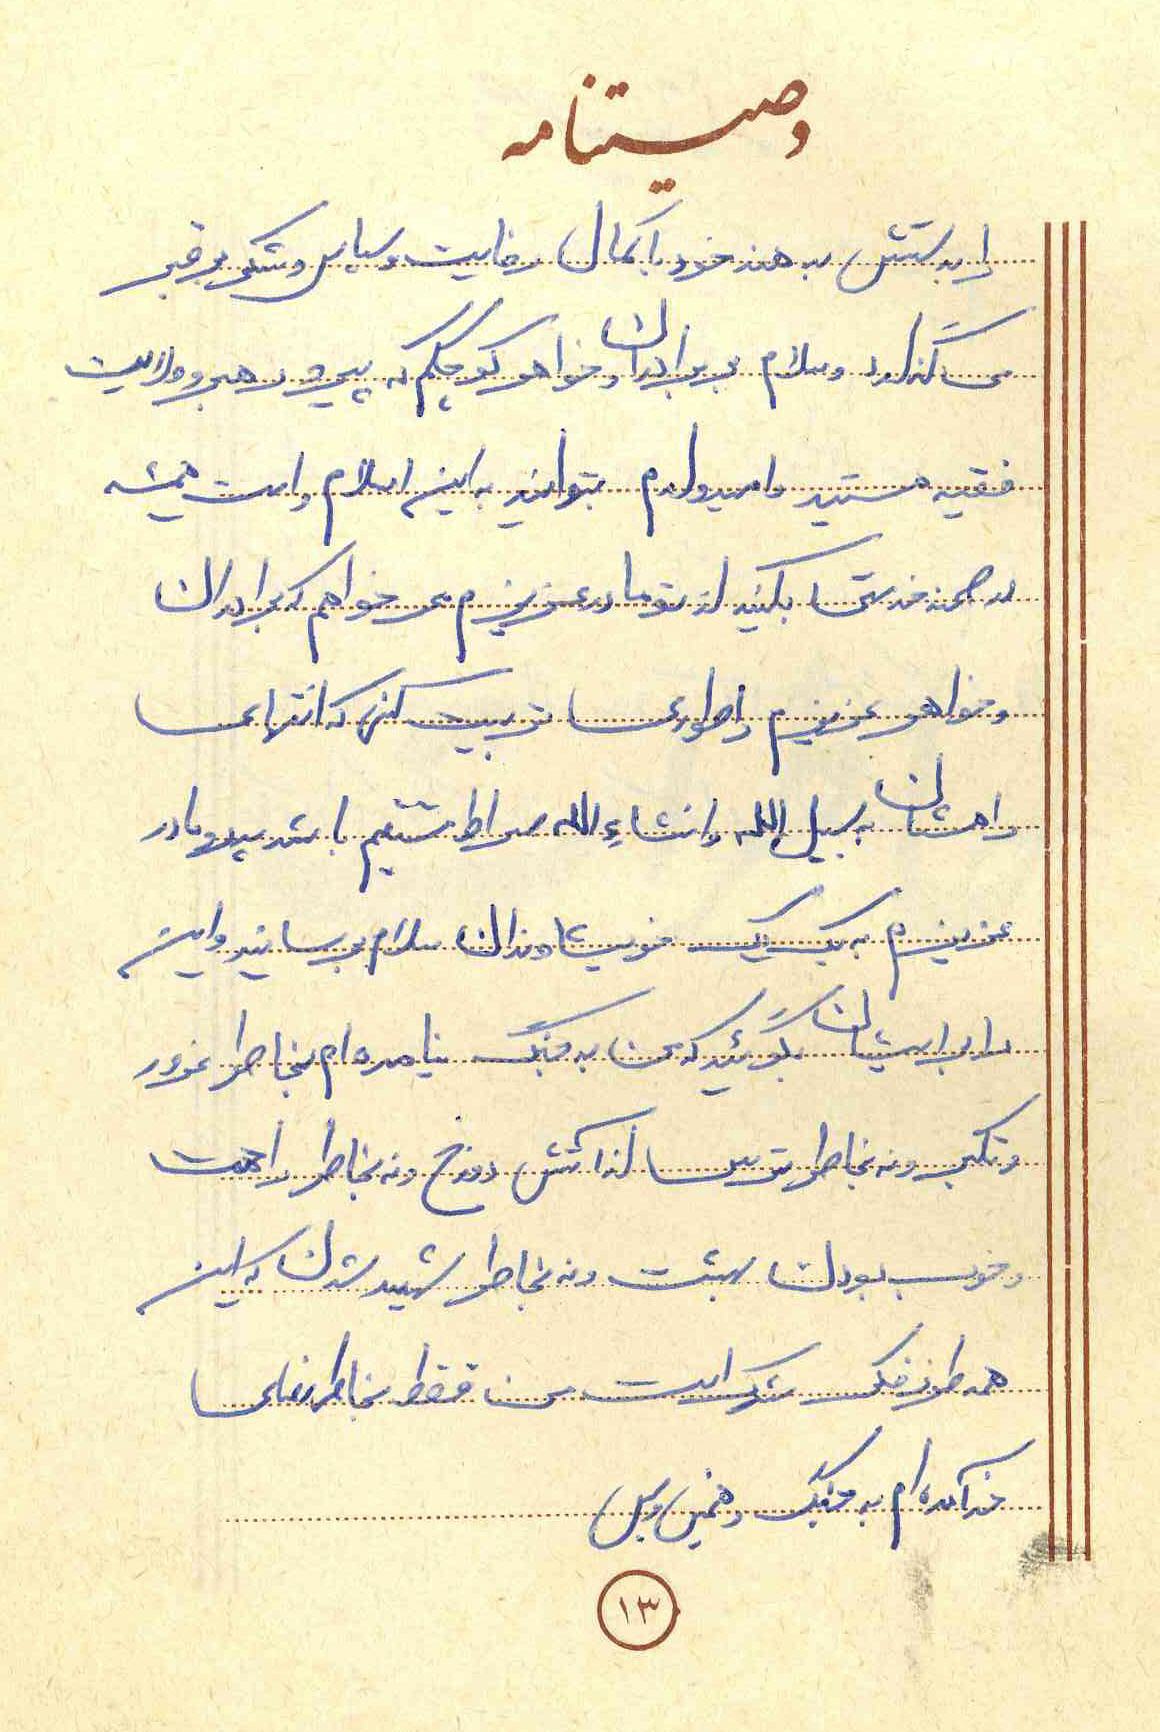 وصیتنامه
را بدستش به همه خود با کمال رضایت و سپاس و شکر بر قبر
می گذارد و سلام بر برادران و خواهر کوچکم که پیرو رهبر و ولایت
فقیه هستید و امیدوارم بتوانید به این اسلام و امت همیشه
در صحنه خدمتی بکنید از تو مادر عزیزم می خواهم که برادران
و خواهر عزیزم را طوری تربیت کنی که انتهای
راهشان به سبیل الله و انشاءالله صراط مستقیم باشد پدر و مادر
عزیزم به یک یک خویشاوندان سلام برسانید و این
را برایشان بگوئید که من به جنگ نیامده ام بخاطر غرور
و تکبر و نه بخاطر ترس از آتش دوزخ و نه بخاطر راحت
و خوب بودن بهشت و نه بخاطر شهید شدن که این
همه طرز فکر شرک است من فقط بخاطر رضای
خدا آمده ام به جنگ و همین و بس
۱۳